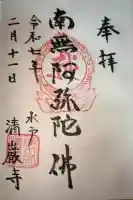 奉拝
南無阿弥陀佛
令和七年
二月十一日
清巌寺